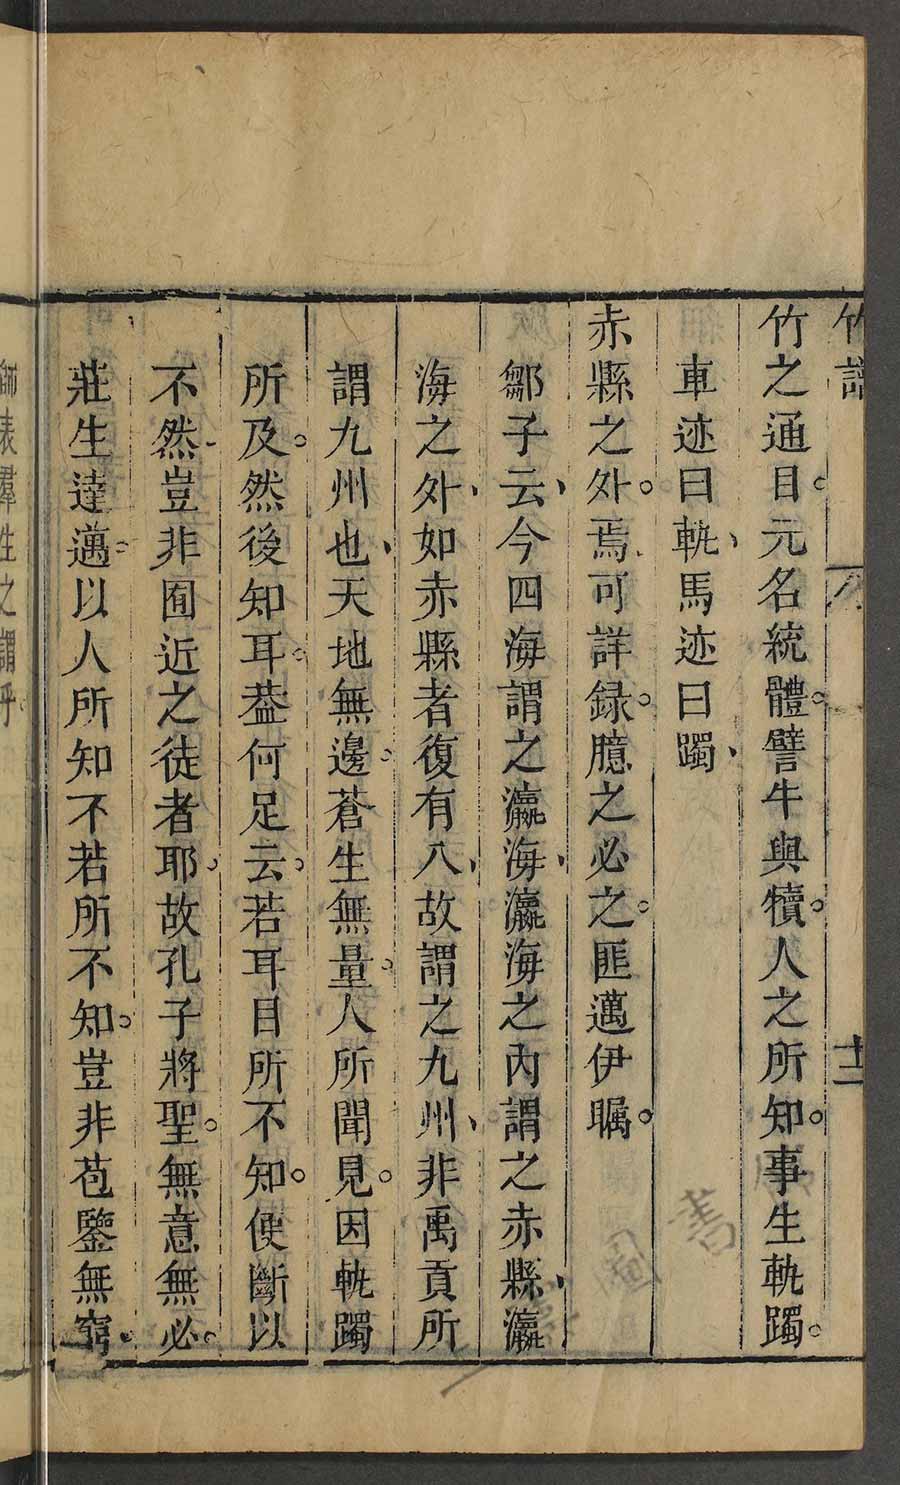 竹譜
十二
竹之通目。元名統體。譬牛與犢。人之所知。事生軌躅。
車迹曰軌、馬迹曰躅、
赤縣之外。焉可詳録。臆之必之。匪邁伊矚。
鄒子云、今四海謂之瀛海、瀛海之內謂之赤縣、瀛
海之外、如赤縣者復有八、故謂之九州、非禹貢所
謂九州也、天地無邊。蒼生無量。人所聞見。因軌躅
所及。然後知耳。葢何足云。若耳目所不知。便斷以
不然、豈非囿近之徒者耶。故孔子將聖。無意無必。
莊生達邁。以人所知不若所不知。豈非苞鑒無窮、
師表羣生之謂乎。